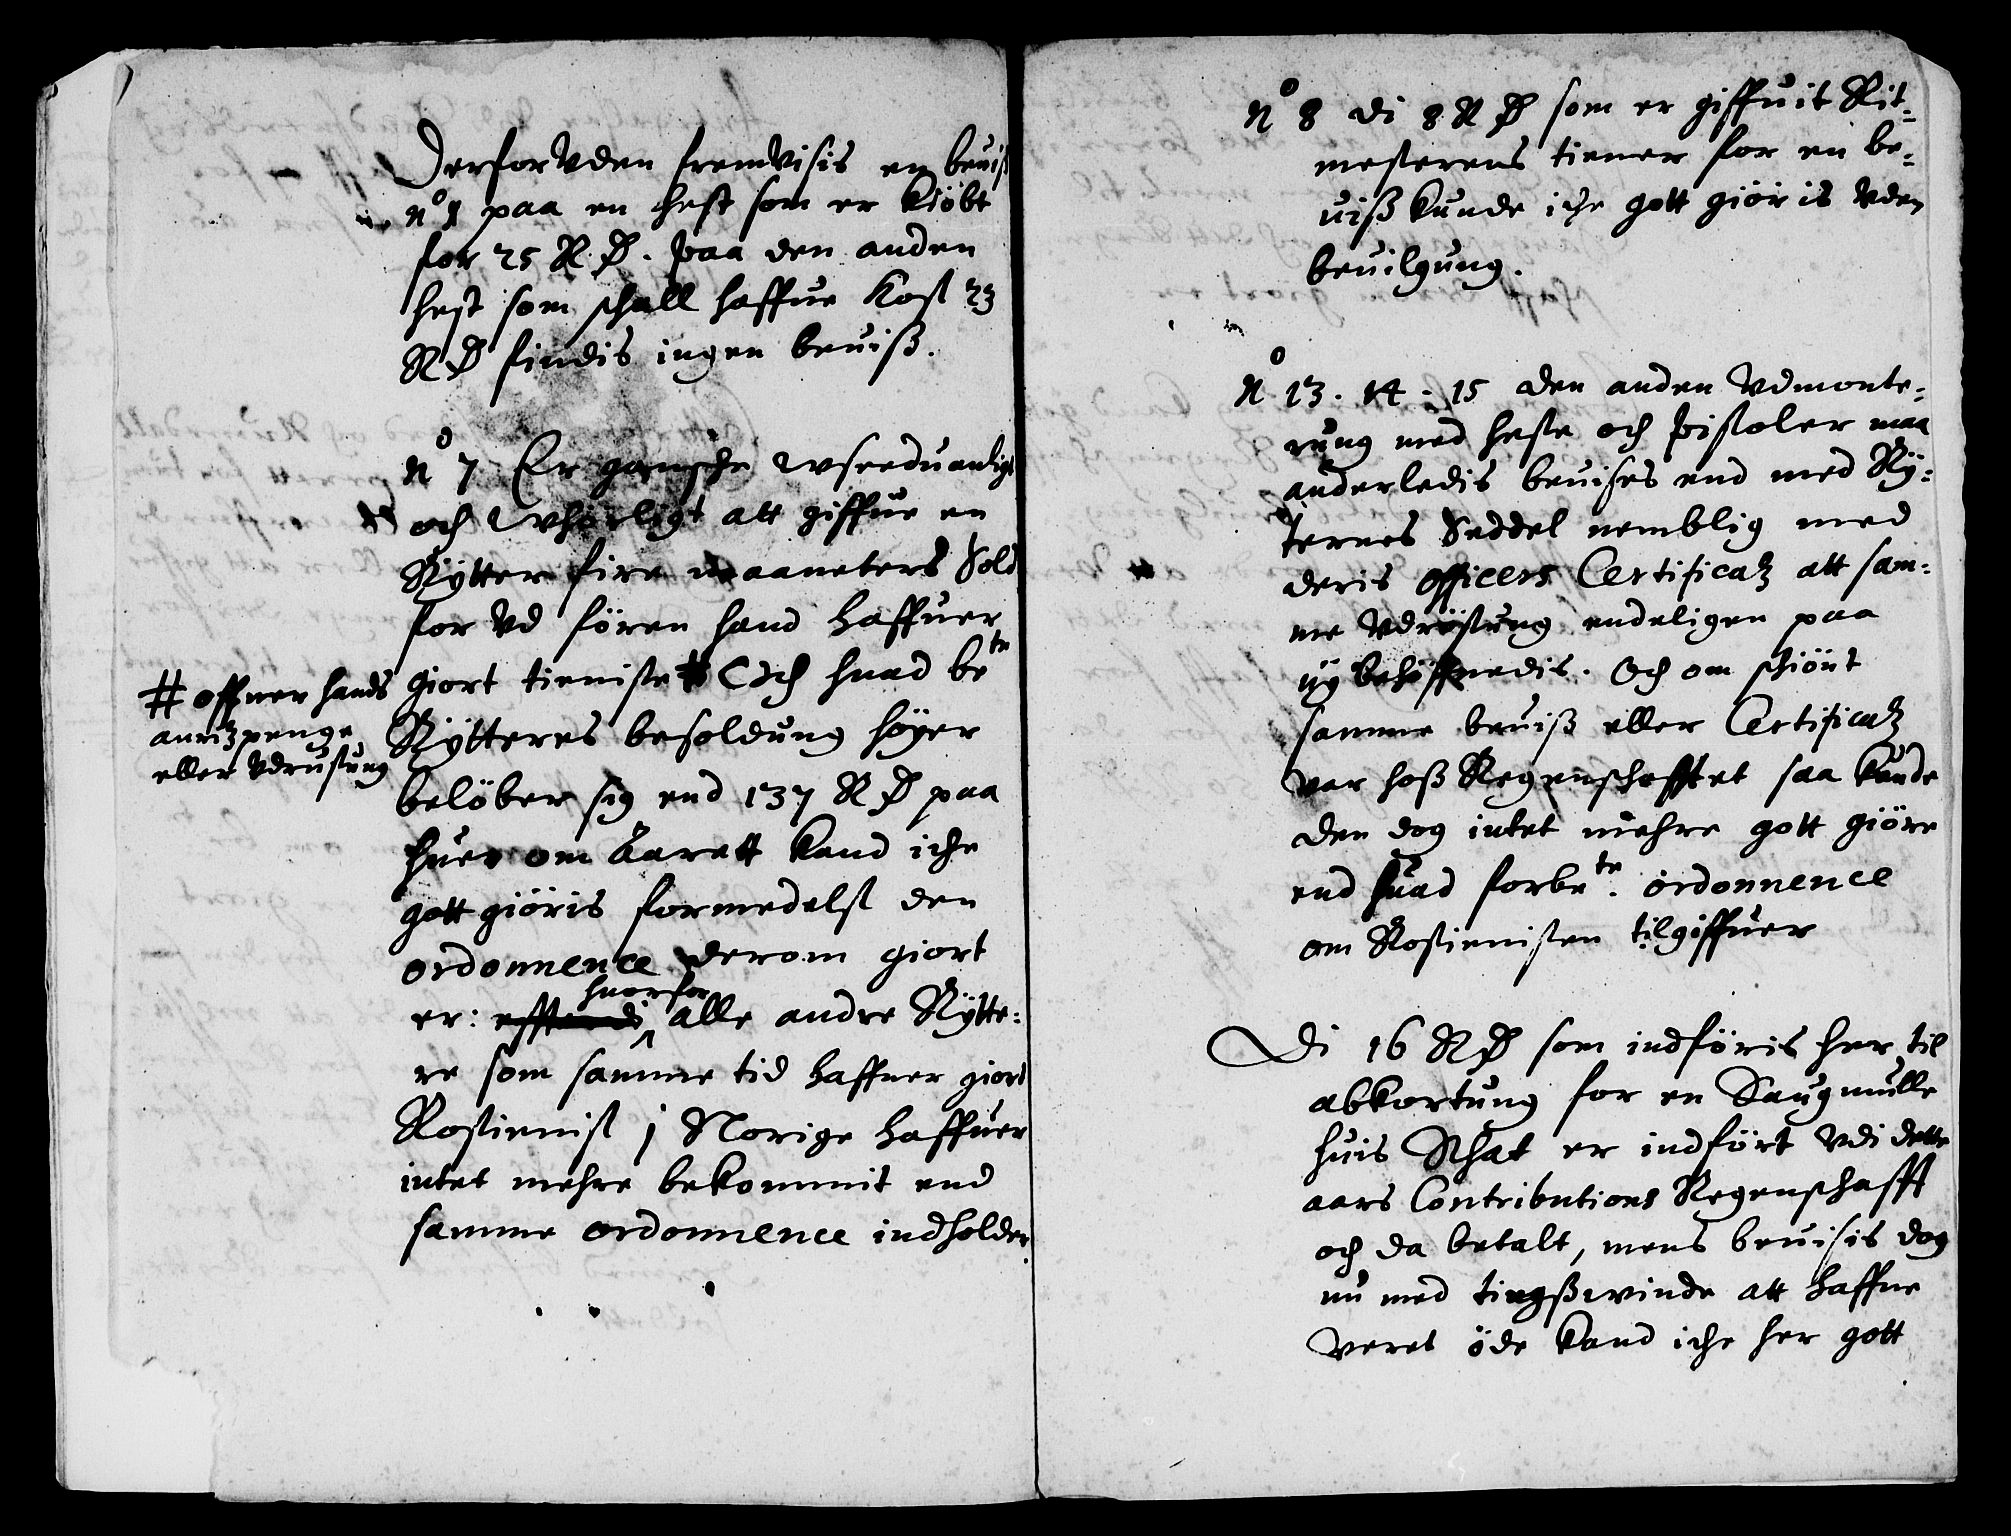 Derforuden fremvisis en beuiß
No 1 paa en hest som er Kiöbt
for 25 R D. Paa den anden
hest som schall haffue Kost 23
R D findis ingen beuiß.
No 7 Er gansche wseeduanligt
och whörligt att giffue en
Rÿtter fire maaneters Sold
for Vd fören hand haffuer
giort tieniste # Och huad bete
# offuer hands
anritzpenge
eller Vdrustung
Rÿtteres besoldung höyer
belöber sig end 137 R D paa
huer om Aarett Kand iche
gott giöris formedelst den
ordonnence derom giort
er: effterdi huorfor alle andre Rÿtte:
re som samme tid haffuer giort
Rostienist j Norige haffuer
intet mehre bekommit end
samme ordonnence indholder.
No 8 Di 8 R D som er giffuit Rit:
mesterens tiener for en be:
uiß kunde iche gott giöris Vden
beuilgung.
No 13. 14. 15 den anden Vdmonte:
rung med heste och Pistoler maa
anderledis beuises end med Rÿ:
ternes Seddel nemblig med
deris officers Certificatz att sam:
me Vdröstung endeligen paa
nÿ behöffuedis. Och om schiönt
samme beuiß eller Certificatz
var hoß Regenschafftet saa kunde
den dog intet mehre gott giöre
end huad forbete. ordonnence
om Rostienisten tilgiffuer
Di 16 R D som indföris her til
abkortung for en Saugmulle
huis Schat er indfört Vdi dette
aars Contributions Regenschafft
och da betalt, mens beuisis dog
nu med tingßwinde att haffue
veret öde Kand iche her gott